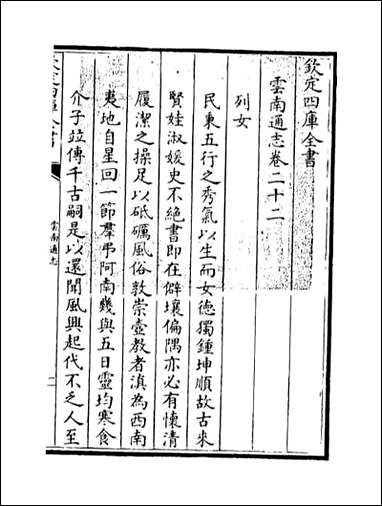 欽定四庫全書
雲南通志卷二十二
列女
民秉五行之秀氣以生而女德獨鍾坤順故古來
賢娃淑媛史不絶書即在僻壤偏隅亦必有懷清
履潔之操足以砥礪風俗敦崇壼教者滇為西南
夷地自星回一節羣弔阿南幾與五日靈均寒食
介子竝傳千古嗣是以還聞風興起代不乏人至
欽定四庫全書
雲南通志